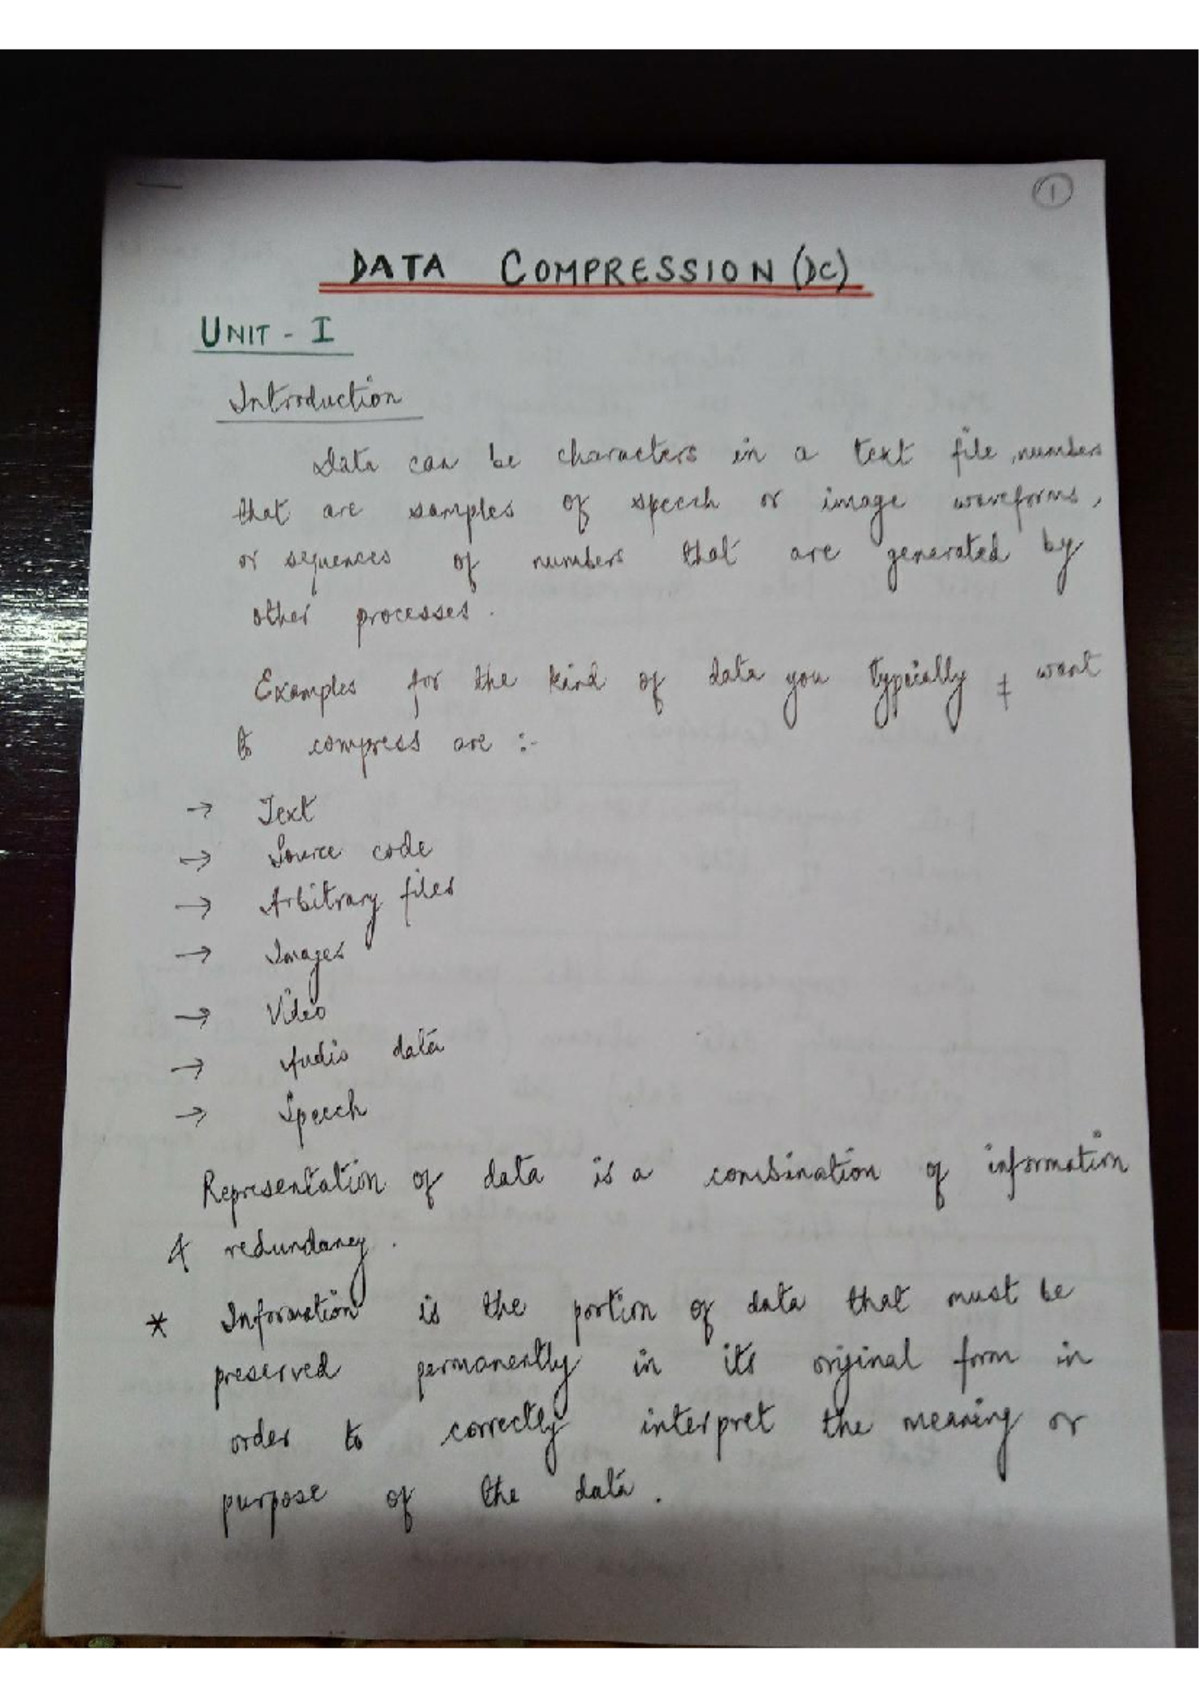 1
DATA COMPRESSION (DC)
UNIT - I
Introduction
Data can be characters in a text file, numbers
that are samples of speech or image waveforms,
or sequences of numbers that are generated by
other processes.
Examples for the kind of data you typically want
to compress are :-
→ Text
→ Source code
→ Arbitrary files
→ Images
→ Video
→ Audio data
→ Speech
Representation of data is a combination of information
& redundancy.
* Information is the portion of data that must be
preserved permanently in its original form in
order to correctly interpret the meaning or
purpose of the data.